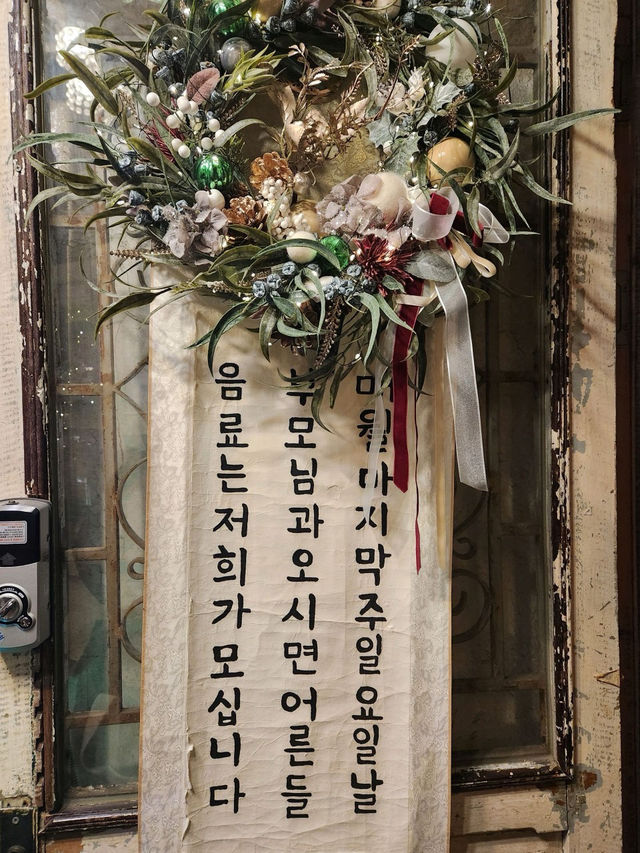 매월마지막주일요일날
부모님과오시면어른들
음료는저희가모십니다